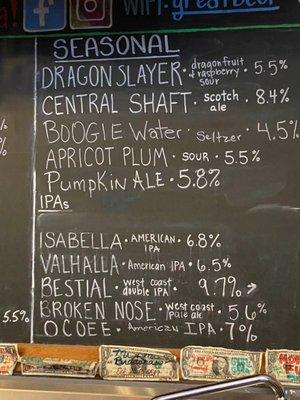 WIFI: greatbeer
SEASONAL
DRAGON SLAYER · dragonfruit & raspberry sour · 5.5%
CENTRAL SHAFT · scotch ale · 8.4%
BOOGIE Water · Seltzer · 4.5%
APRICOT PLUM · SOUR · 5.5%
PumpKin ALE · 5.8%
IPAs
ISABELLA · AMERICAN IPA · 6.8%
VALHALLA · American IPA · 6.5%
BESTIAL · west coast double IPA · 9.7%
BROKEN NOSE · west coast pale ale · 5.6%
5.5%
OCOEE · American IPA · 7%